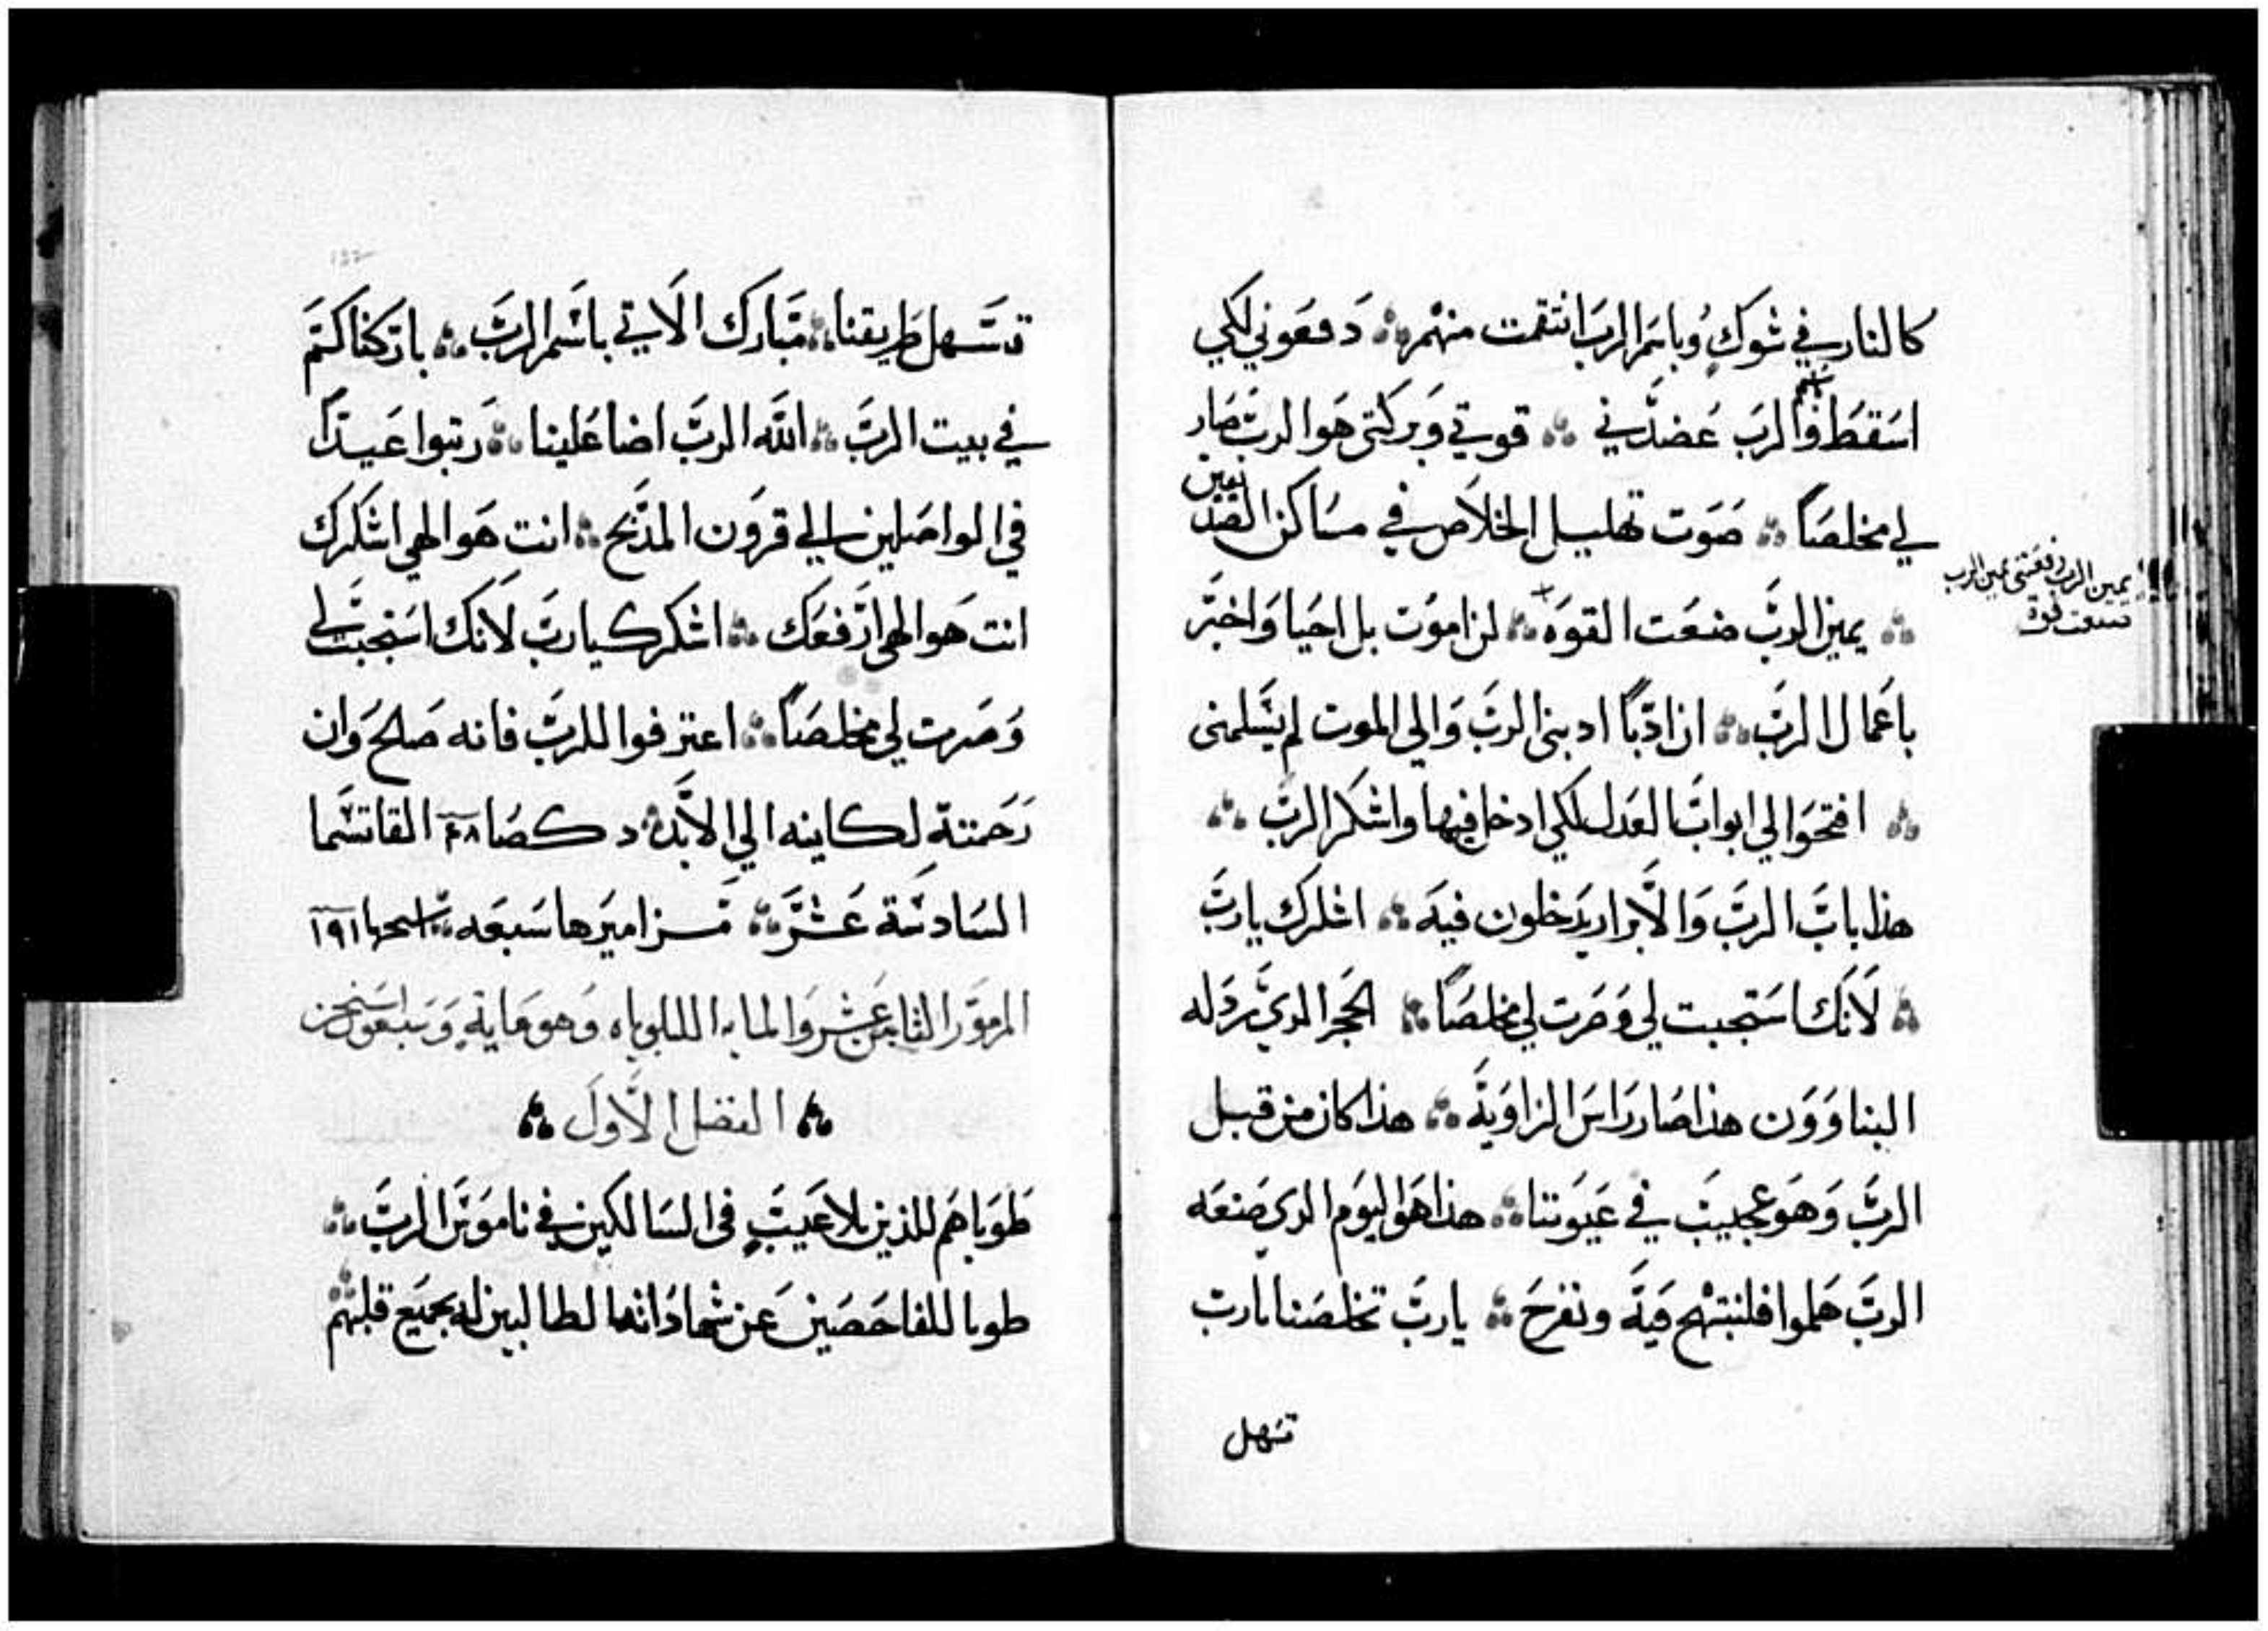 كالنار في شوك وباسم الرب انتقمت منهم دفعوني لكي
اسقط والرب عضدني قوتي وبركتي هوا الرب صار
لي مخلصا صوت تهليل الخلاص في مساكن الصديقين
يمين الرب رفعتني يمين الرب
صنعت قوة
يمين الرب صنعت القوه لن اموت بل احيا واخبر
باعمال الرب ان ادبا ادبني الرب والي الموت لم يسلمني
افتحوا لي ابواب العدل لكي ادخل فيها واشكر الرب
هذا باب الرب والابرار يدخلون فيه اشكرك يا رب
لانك استجبت لي وصرت لي مخلصا الحجر الدي ردله
البناوون هذا صار راس الزاوية هذا كان من قبل
الرب وهو عجيب في عيوننا هذا هوا اليوم الدي صنعه
الرب هلموا فلنبتهج فيه ونفرح يا رب تخلصنا يارب
تسهل
تسهل طريقنا مبارك الاتي باسم الرب باركناكم
في بيت الرب الله الرب اضا علينا رتبوا عيدا
في الواصلين الي قرون المدبح انت هوا الهي اشكرك
انت هوا الهي ارفعك اشكرك يارب لانك استجبت لي
وصرت لي مخلصا اعترفوا للرب فانه صالح وان
رحمته لكاينه الي الابد د كصا القاتسما
السادسة عشر مزاميرها سبعه
المزمور الثامن عشر والمايه الليلوياه وهو ماية وسبعون
الفصل الاول
طوباهم للذين بلا عيب في السالكين في ناموس الرب
طوبا للفاحصين عن شهاداته الطالبين له بجميع قلبهم